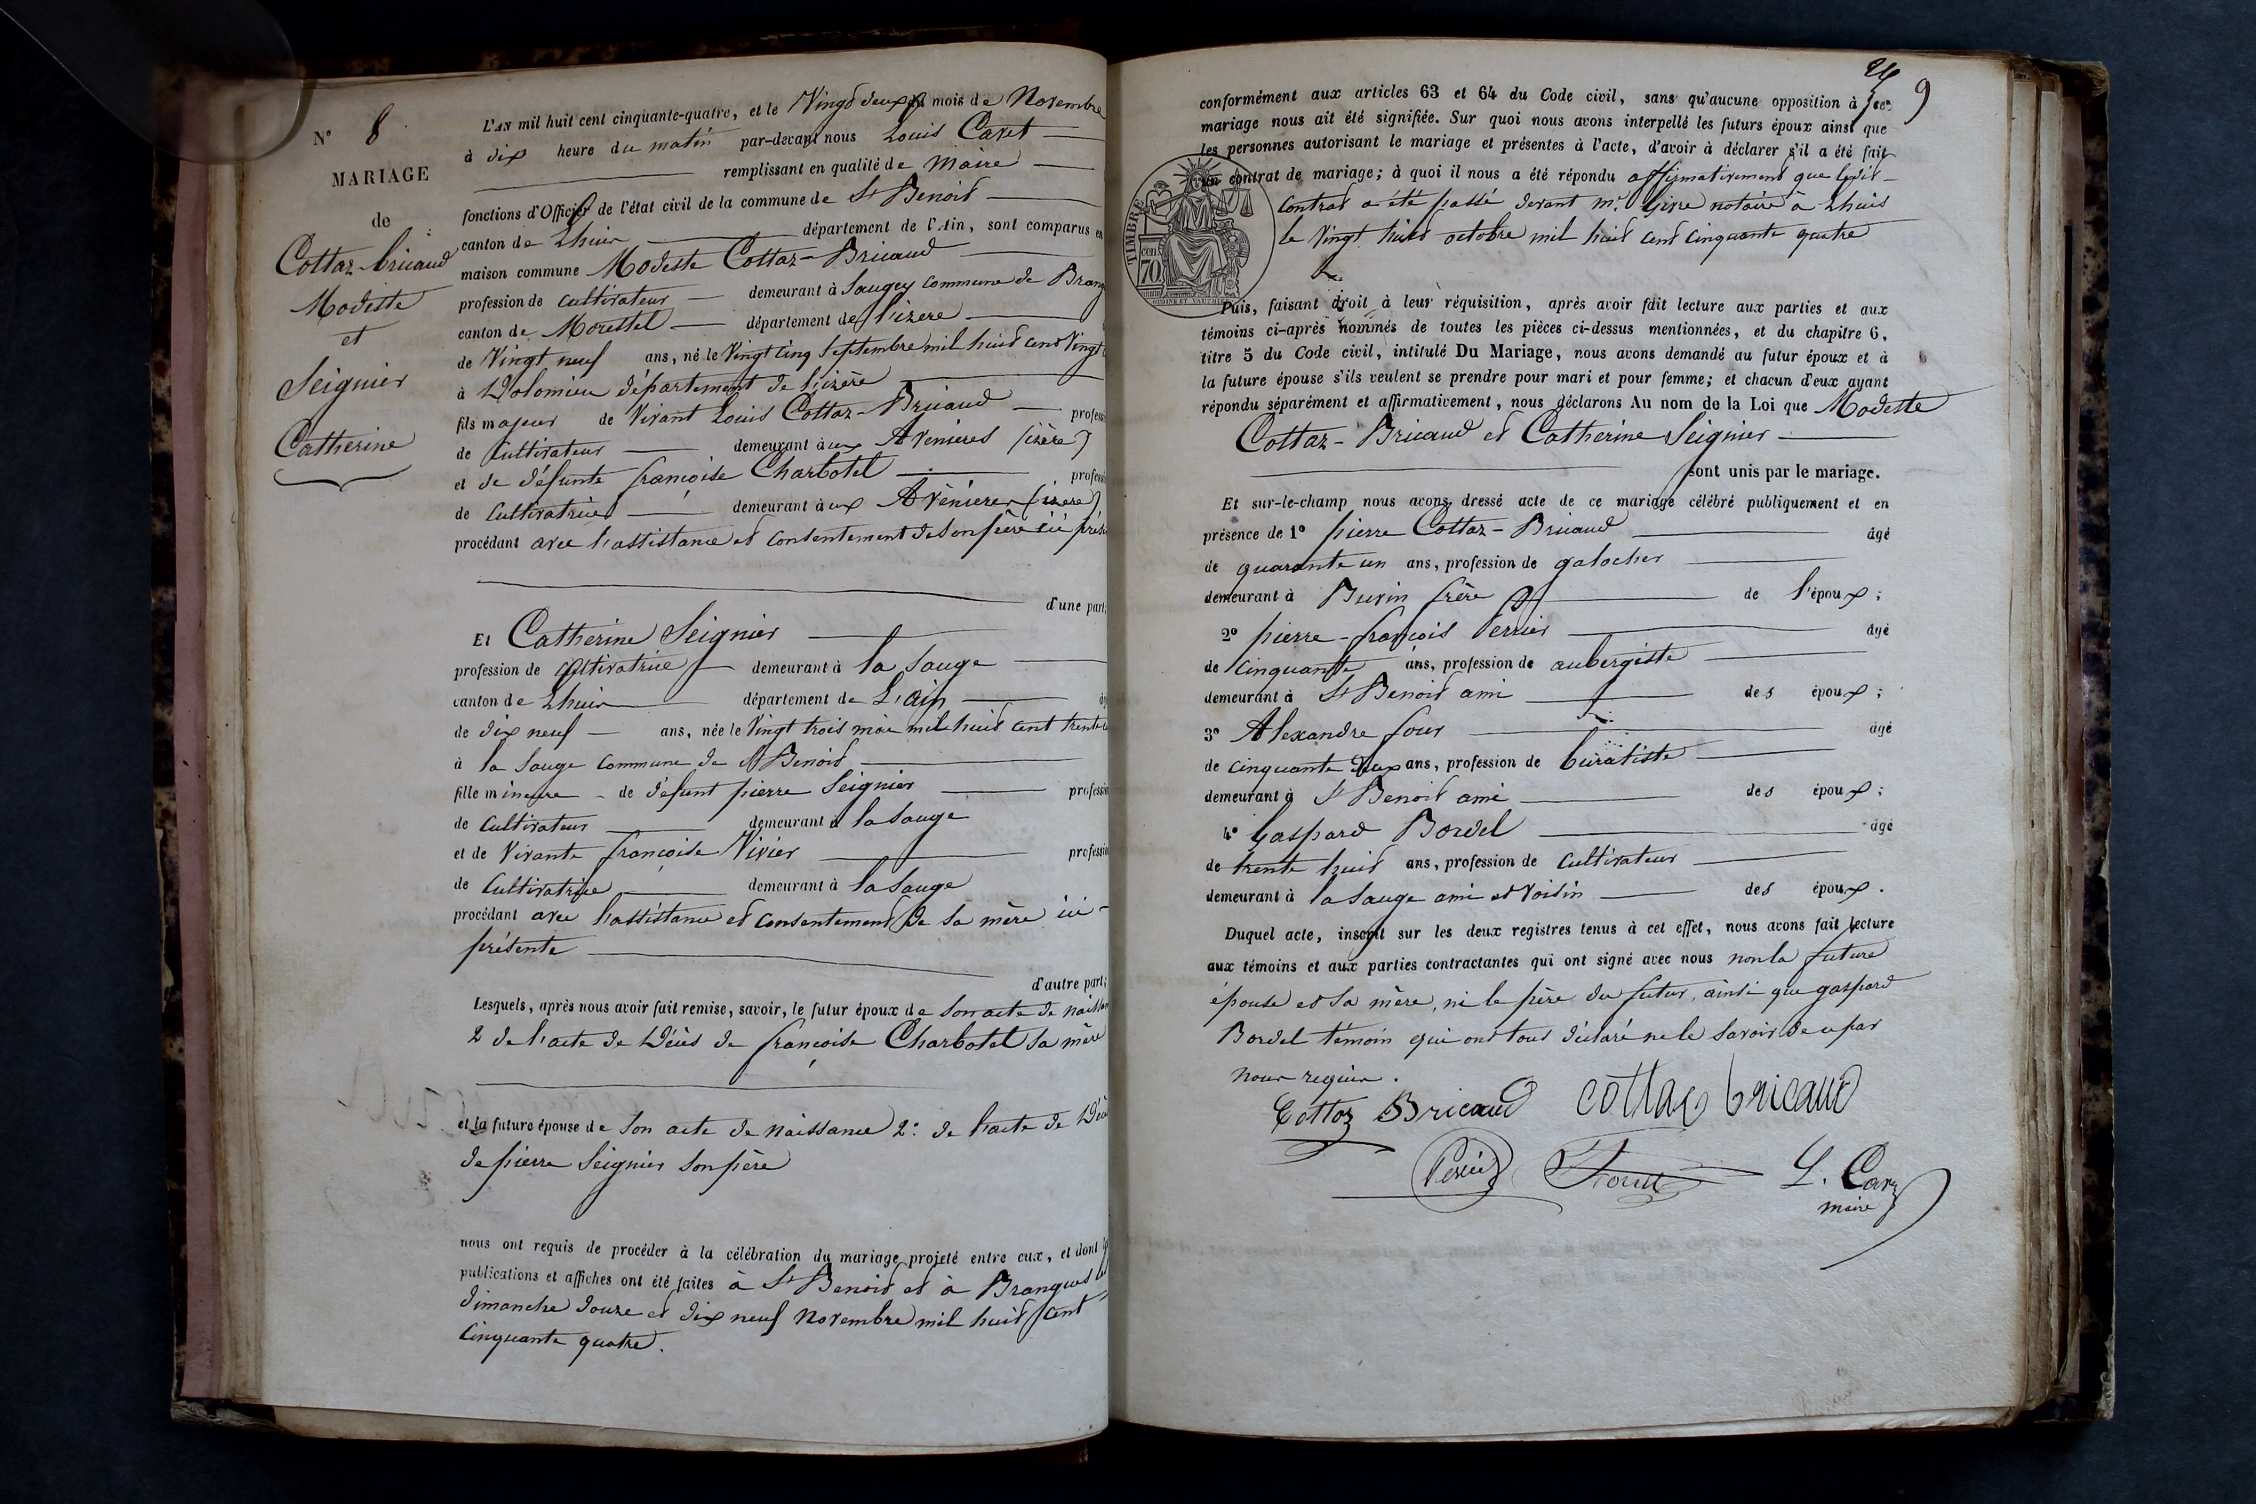 N° 8
MARIAGE
de
Cottaz-bricaud
Modeste
et
Seignier
Catherine
L'AN mil huit cent cinquante-quatre, et le Vingt deux du mois de Novembre
à dix heure du matin par-devant nous Louis Caret
remplissant en qualité de Maire
fonctions d'Officier de l'état civil de la commune de St Benoit
canton de Lhuis département de l'Ain, sont comparus en
maison commune Modeste Cottaz-Bricaud
profession de cultivateur demeurant à Saugey commune de Brang
canton de Morestel département de l'izere
de Vingt neuf ans, né le Vingt cinq Septembre mil huit cent Vingt
à Dolomieu département de l'izère
fils majeur de Vivant Louis Cottaz-Bricaud profess
de Cultivateur demeurant à ux Avenieres (izère)
et de défunte françoise Charbotel profess
de Cultivatrice demeurant à ux Avènieres (izere)
procédant avec l'assistance et consentement de son père ici prés
d'une part;
Et Catherine Seignier
profession de Cultivatrice demeurant à la Sauge
canton de Lhuis département de L'ain
de dix neuf ans, née le Vingt trois mai mil huit cent trente
à la Sauge commune de St Benoit
fille mineure de défunt pierre Seignier professio
de Cultivateur demeurant à la Sauge
et de Vivante françoise Vivier professio
de Cultivatrice demeurant à la Sauge
procédant avec l'assistance et consentement de sa mère ici-
présente
d'autre part;
Lesquels, après nous avoir fait remise, savoir, le futur époux de son acte de naissan
2 de l'acte de Décès de françoise Charbotel sa mère
et la future épouse de son acte de naissance 2° de l'acte de Décè
de pierre Seignier son père
nous ont requis de procéder à la célébration du mariage projeté entre eux, et dont
publications et affiches ont été faites à St Benoit et à Brangues les
dimanche douze et dix neuf Novembre mil huit cent
cinquante quatre.
24
9
conformément aux articles 63 et 64 du Code civil, sans qu'aucune opposition à ce
mariage nous ait été signifiée. Sur quoi nous avons interpellé les futurs époux ainsi que
les personnes autorisant le mariage et présentes à l'acte, d'avoir à déclarer s'il a été fait
un contrat de mariage; à quoi il nous a été répondu affirmativement que ledit
contrat a été passé devant Mr. Givre notaire à Lhuis
le Vingt huit octobre mil huit cent cinquante quatre
TIMBRE
70
Puis, faisant droit à leur réquisition, après avoir fait lecture aux parties et aux
témoins ci-après nommés de toutes les pièces ci-dessus mentionnées, et du chapitre 6,
titre 5 du Code civil, intitulé Du Mariage, nous avons demandé au futur époux et à
la future épouse s'ils veulent se prendre pour mari et pour femme; et chacun d'eux ayant
répondu séparément et affirmativement, nous déclarons Au nom de la Loi que Modeste
Cottaz-Bricaud et Catherine Seignier
sont unis par le mariage.
Et sur-le-champ nous avons dressé acte de ce mariage célébré publiquement et en
présence de 1° pierre Cottaz-Bricaud âgé
de quarante un ans, profession de galocher
demeurant à Buvin frère de l'époux;
2° pierre-françois Perrier âgé
de cinquante ans, profession de aubergiste
demeurant à St Benoit ami des époux;
3° Alexandre four âgé
de cinquante deux ans, profession de buratiste
demeurant à St Benoit ami des époux;
4° Gaspard Bordel âgé
de trente huit ans, profession de Cultivateur
demeurant à la Sauge ami et Voisin des époux.
Duquel acte, inscrit sur les deux registres tenus à cet effet, nous avons fait lecture
aux témoins et aux parties contractantes qui ont signé avec nous non la future
épouse et sa mère, ni le père du futur, ainsi que gaspard
Bordel témoin qui ont tous déclaré ne le savoir de ce par
nous requis.
Cottaz Bricaud cottaz bricaud
L. Caret
maire